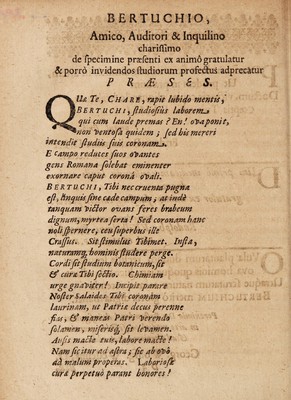 BERTUCHIO,
Amico, Auditori & Inquilino
charissimo
de specimine præsenti ex animô gratulatur
& porrò invidendos studiorum profectus adprecatur
PRÆSES.
QUæ Te, CHARE, rapit lubido mentis,
BERTUCHI, studiosiùs laborem
qui cum laude premas? En! ovaponit,
non ventosa quidem; sed his mereri
intendit studiis suis coronam.
E campo reduces suos ovantes
gens Romana solebat eminenter
exornare caput coronâ ovali.
BERTUCHI, Tibi nec cruenta pugna
est, linquis sine cæde campum, at indè
tanquam victor ovans feres brabeum
dignum, myrtea serta! Sed coronam hanc
noli spernere, ceu superbus ille
Crassus. Sit stimulus Tibimet. Insta,
naturamq; hominis studere perge.
Cordi sit studium botanicum, sit
& cura Tibi sectio. Chimiam
urge gnaviter! Incipit parare
Noster Salaides Tibi coronam
laurinam, ut Patriæ decus perenne
fias, & maneas Patri verendo
solamen, miserisq; sis levamen.
Ausis macte tuis, labore macte!
Nam sic itur ad astra; sic ab ovô
ad malum properas. Laboriosæ
cura perpetuò parant honores!